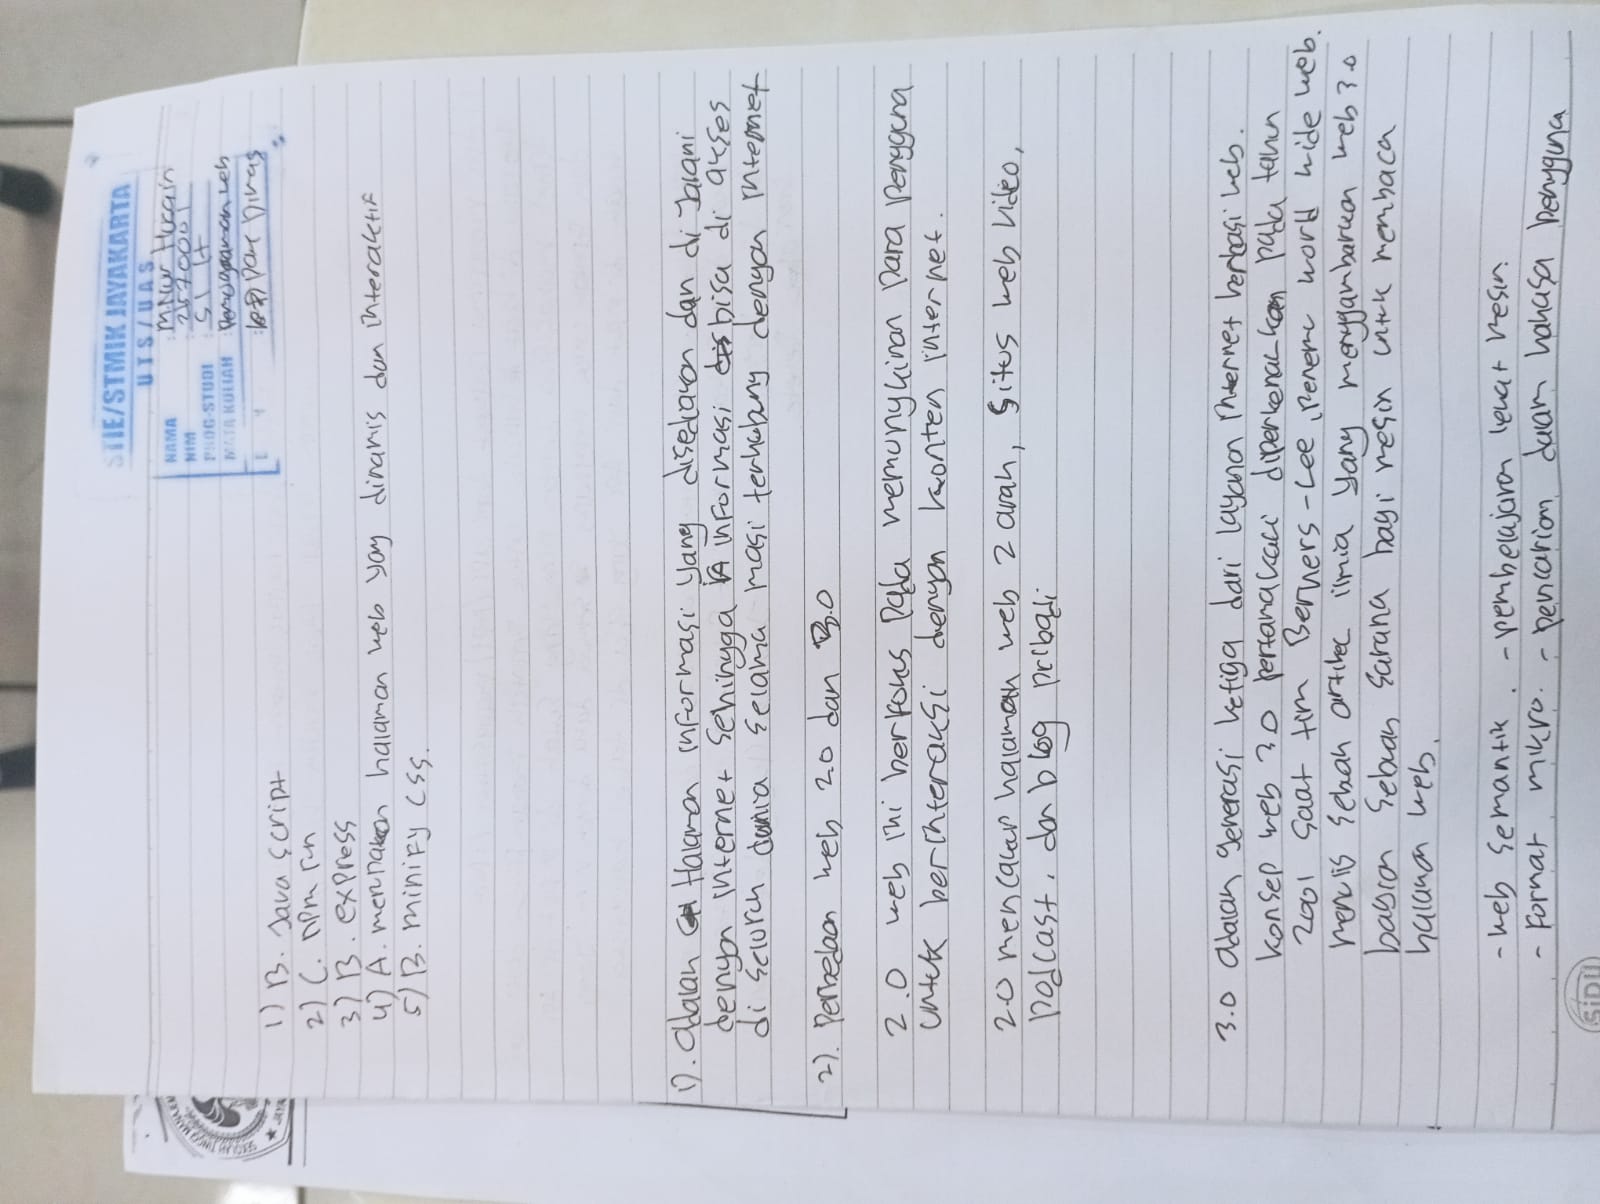 STIE/STMIK JAYAKARTA
UTS/UAS
NAMA : M Nur Husain
NIM : 2570001
PROG-STUDI : S1 IT
MATA KULIAH : Pemrograman web
1) B. Java script
2) C. npm run
3) B. express
4) A. merupakan halaman web yang dinamis dan interaktif
5) B. minify CSS.
1). adalah Halaman informasi yang disediakan dan di Jalani
dengan internet sehingga informasi bisa di akses
di seluruh dunia selama masi terhubung dengan internet
2). Perbedaan web 2.0 dan 3.0
2.0 web ini berfokus pada memungkinan para pengguna
untuk berinteraksi dengan konten internet.
2.0 mencakup halaman web 2 arah, situs web video,
podcast, dan blog pribadi
3.0 adalah generasi ketiga dari layanan internet berbasis web.
konsep web 3.0 pertamakali diperkenalkan pada tahun
2001 saat tim Berners-Lee, penemu world wide web.
menulis sebuah artikel ilmia yang menggambarkan web 3.0
bagian sebuah sarana bagi mesin untuk membaca
halaman web.
- web semantik. - pembelajaran lewat mesin
- Format mikro. - pencarian dalam bahasa pengguna
SiDU